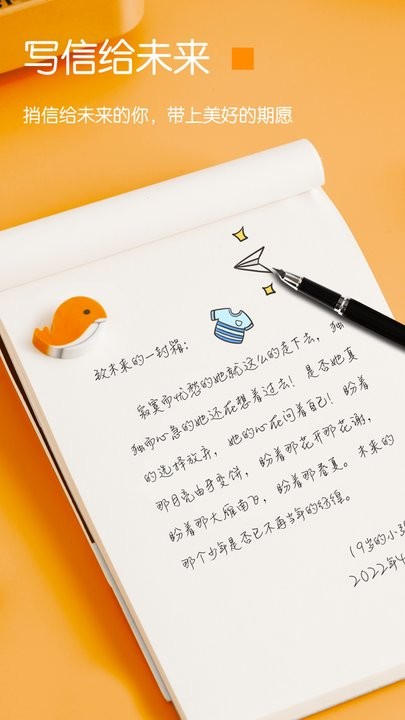 写信给未来
捎信给未来的你，带上美好的期愿
致未来的一封箱：
寂寞而忧愁的她就这么的走下去，独
独而心急的她还在想着过去！是否她真
的选择放弃，她的心在问着自己！盼着
那月亮由牙变饼，盼着那花开那花谢，
盼着那大雁南飞，盼着那春夏。未来的
那个少年是否已不再当年的
19岁的小
2022年4